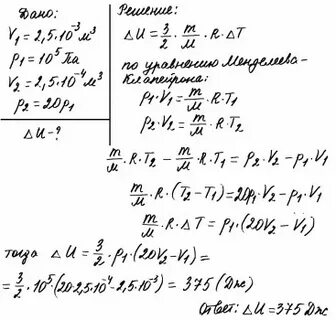 Дано:
V₁ = 2,5·10⁻³ м³
p₁ = 10⁵ Па
V₂ = 2,5·10⁻⁴ м³
p₂ = 20p₁
ΔU - ?
Решение:
ΔU = 3/2 · m/M · R · ΔT
по уравнению Менделеева-
Клапейрона:
p₁·V₁ = m/M · R·T₁
p₂·V₂ = m/M · R·T₂
m/M · R·T₂ - m/M · R·T₁ = p₂·V₂ - p₁·V₁
m/M · R·(T₂-T₁) = 20p₁·V₂ - p₁·V₁
m/M · R·ΔT = p₁·(20V₂-V₁)
тогда ΔU = 3/2 · p₁·(20V₂-V₁) =
= 3/2 · 10⁵·(20·2,5·10⁻⁴ - 2,5·10⁻³) = 375 (Дж)
Ответ: ΔU = 375 Дж